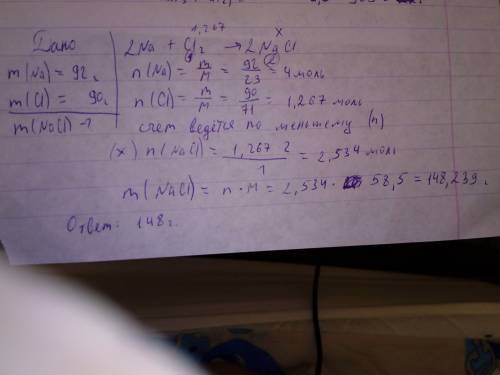 1,267 x
Дано
2Na + Cl2 → 2NaCl
m(Na) = 92 г
n(Na) = m/M = 92/23 = 4 моль
m(Cl) = 90 г
n(Cl) = m/M = 90/71 = 1,267 моль
m(NaCl) - ?
счет ведётся по меньшему (n)
(x) n(NaCl) = 1,267 · 2/1 = 2,534 моль
m(NaCl) = n · M = 2,534 · 58,5 = 148,239 г
Ответ: 148 г.